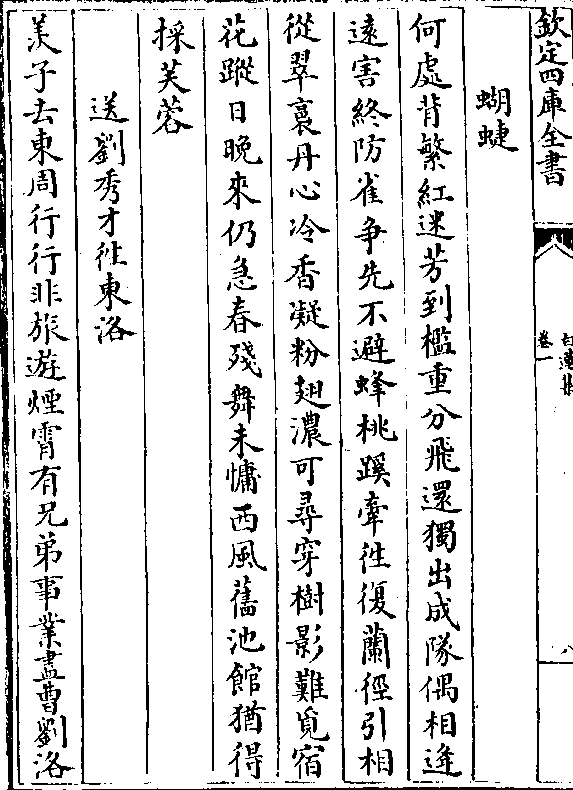 欽定四庫全書
白蓮集
卷一
八
蝴蝶
何處背繁紅迷芳到檻重分飛還獨出成隊偶相逢
遠害終防雀争先不避蜂桃蹊牽徃復蘭徑引相
從翠裛丹心冷香凝粉翅濃可尋穿樹影難覓宿
花蹤日晩來仍急春殘舞未慵西風舊池館猶得
採芙蓉
送劉秀才徃東洛
羡子去東周行行非旅遊煙霄有兄弟事業盡曹劉洛